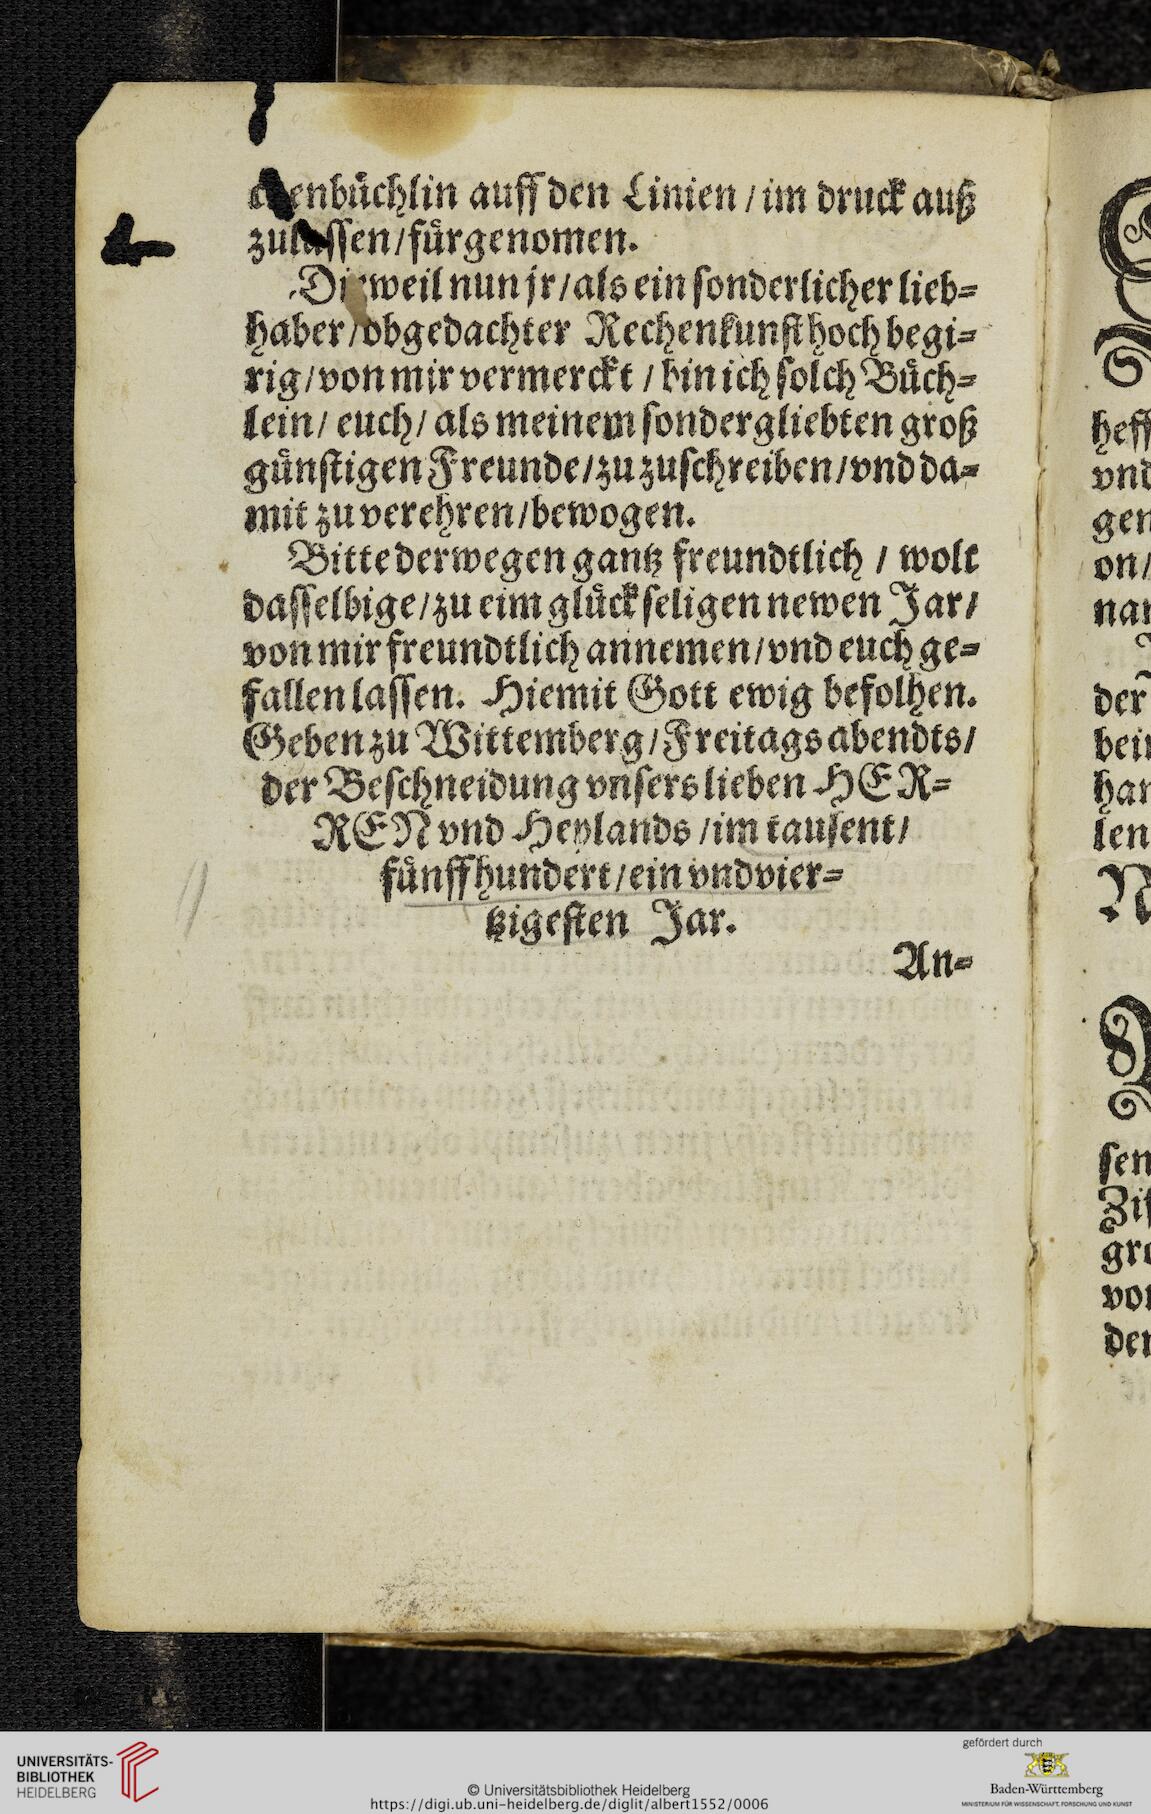 enbüchlin auff den Linien / im druck auß
zulassen / fürgenomen.
Dieweil nun jr / als ein sonderlicher lieb=
haber / obgedachter Rechenkunst hoch begi=
rig / von mir vermerckt / bin ich solch Büch=
lein / euch / als meinem sondergliebten groß
günstigen Freunde / zu zuschreiben / vnd da=
mit zu verehren / bewogen.
Bitte derwegen gantz freundtlich / wolt
dasselbige / zu eim glückseligen newen Jar /
von mir freundtlich annemen / vnd euch ge=
fallen lassen. Hiemit Gott ewig befolhen.
Geben zu Wittemberg / Freitags abendts /
der Beschneidung vnsers lieben HER=
REN vnd Heylands / im tausent /
fünffhundert / ein vnd vier=
tzigesten Jar.
An=
heff
vnd
gen
on /
nan
der
bei
han
len
N
sen
Zif
gro
von
den
UNIVERSITÄTS-
BIBLIOTHEK
HEIDELBERG
© Universitätsbibliothek Heidelberg
https://digi.ub.uni-heidelberg.de/diglit/albert1552/0006
gefördert durch
Baden-Württemberg
MINISTERIUM FÜR WISSENSCHAFT, FORSCHUNG UND KUNST